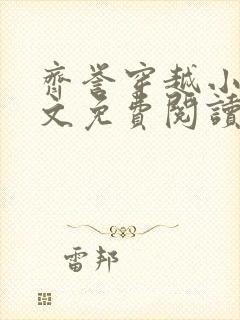 齊誉穿越小
文免費閱讀
雷邦